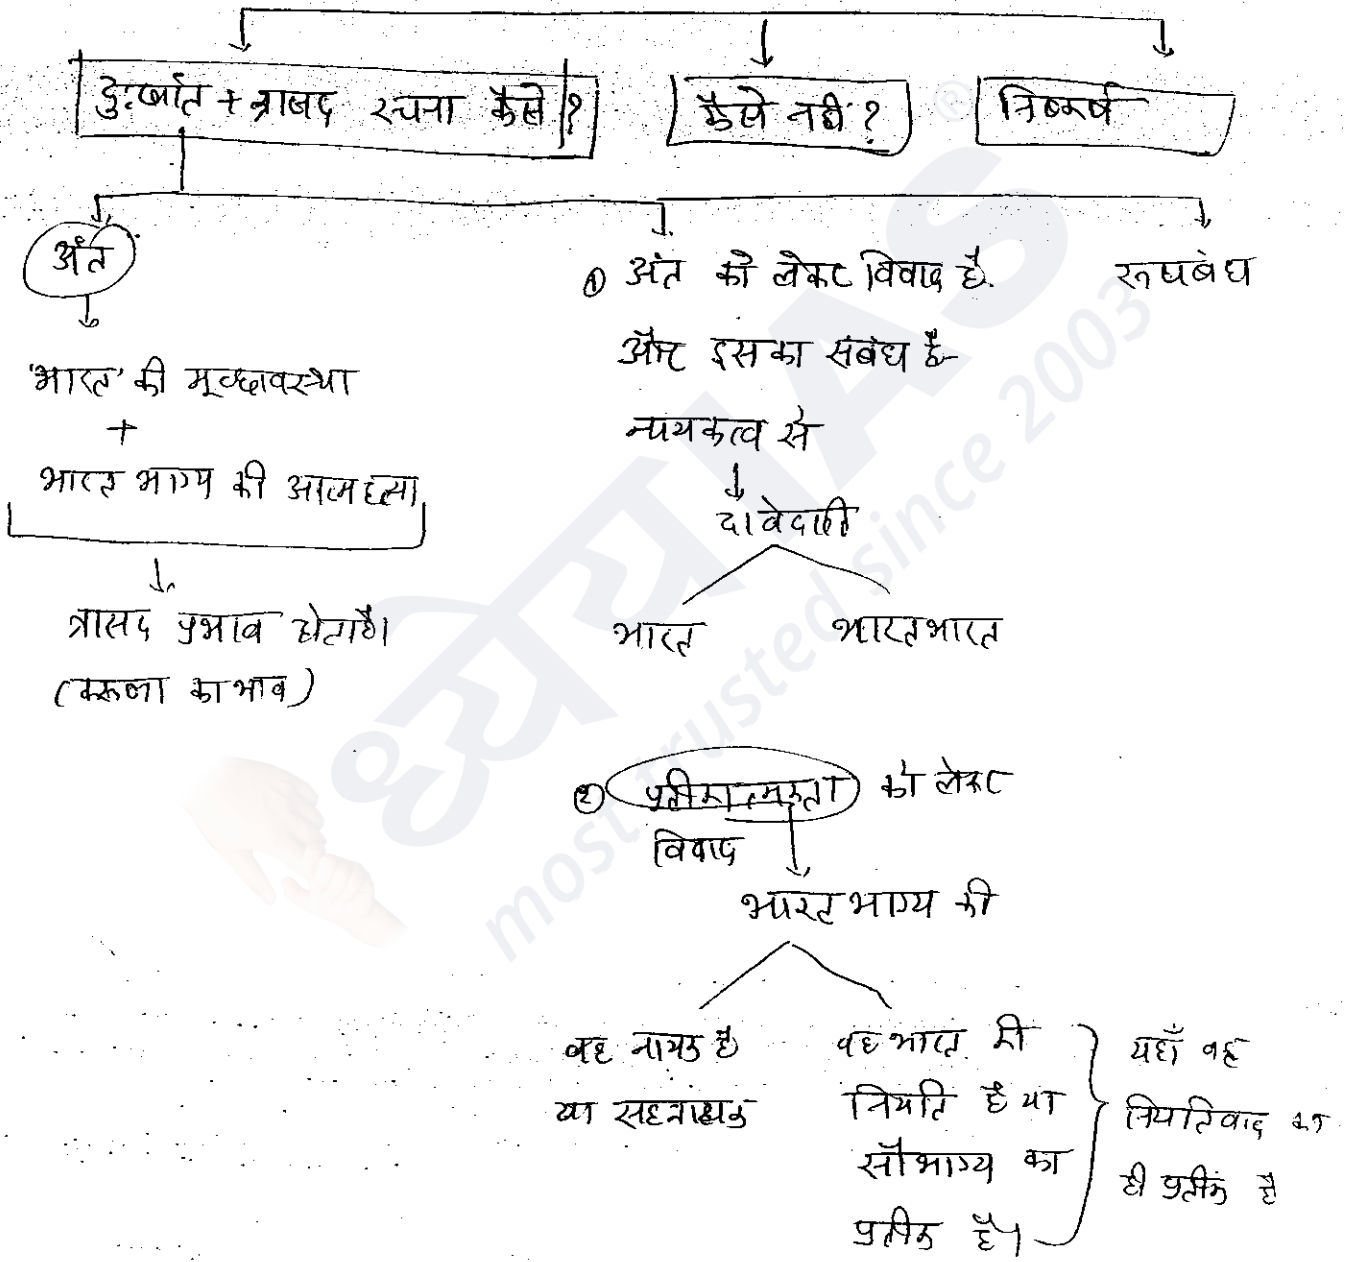 दु:खांत + त्रासद रचना कैसे?
कैसे नहीं?
निष्कर्ष
अंत
'भारत' की मूर्च्छावस्था
+
भारत भाग्य की आत्महत्या
त्रासद प्रभाव होता है।
(करूणा का भाव)
① अंत को लेकर विवाद है.
और इसका संबंध है-
नायकत्व से
दावेदारी
भारत
भारतभारत
② प्रतीकात्मकता को लेकर
विवाद
भारत भाग्य की
वह नायक है
या सहनायक
वह भारत की
नियति है या
सौभाग्य का
प्रतीक है।
यहाँ वह
नियतिवाद का
ही प्रतीक है
रूपबंध
ध्येय IAS
most trusted since 2003
®